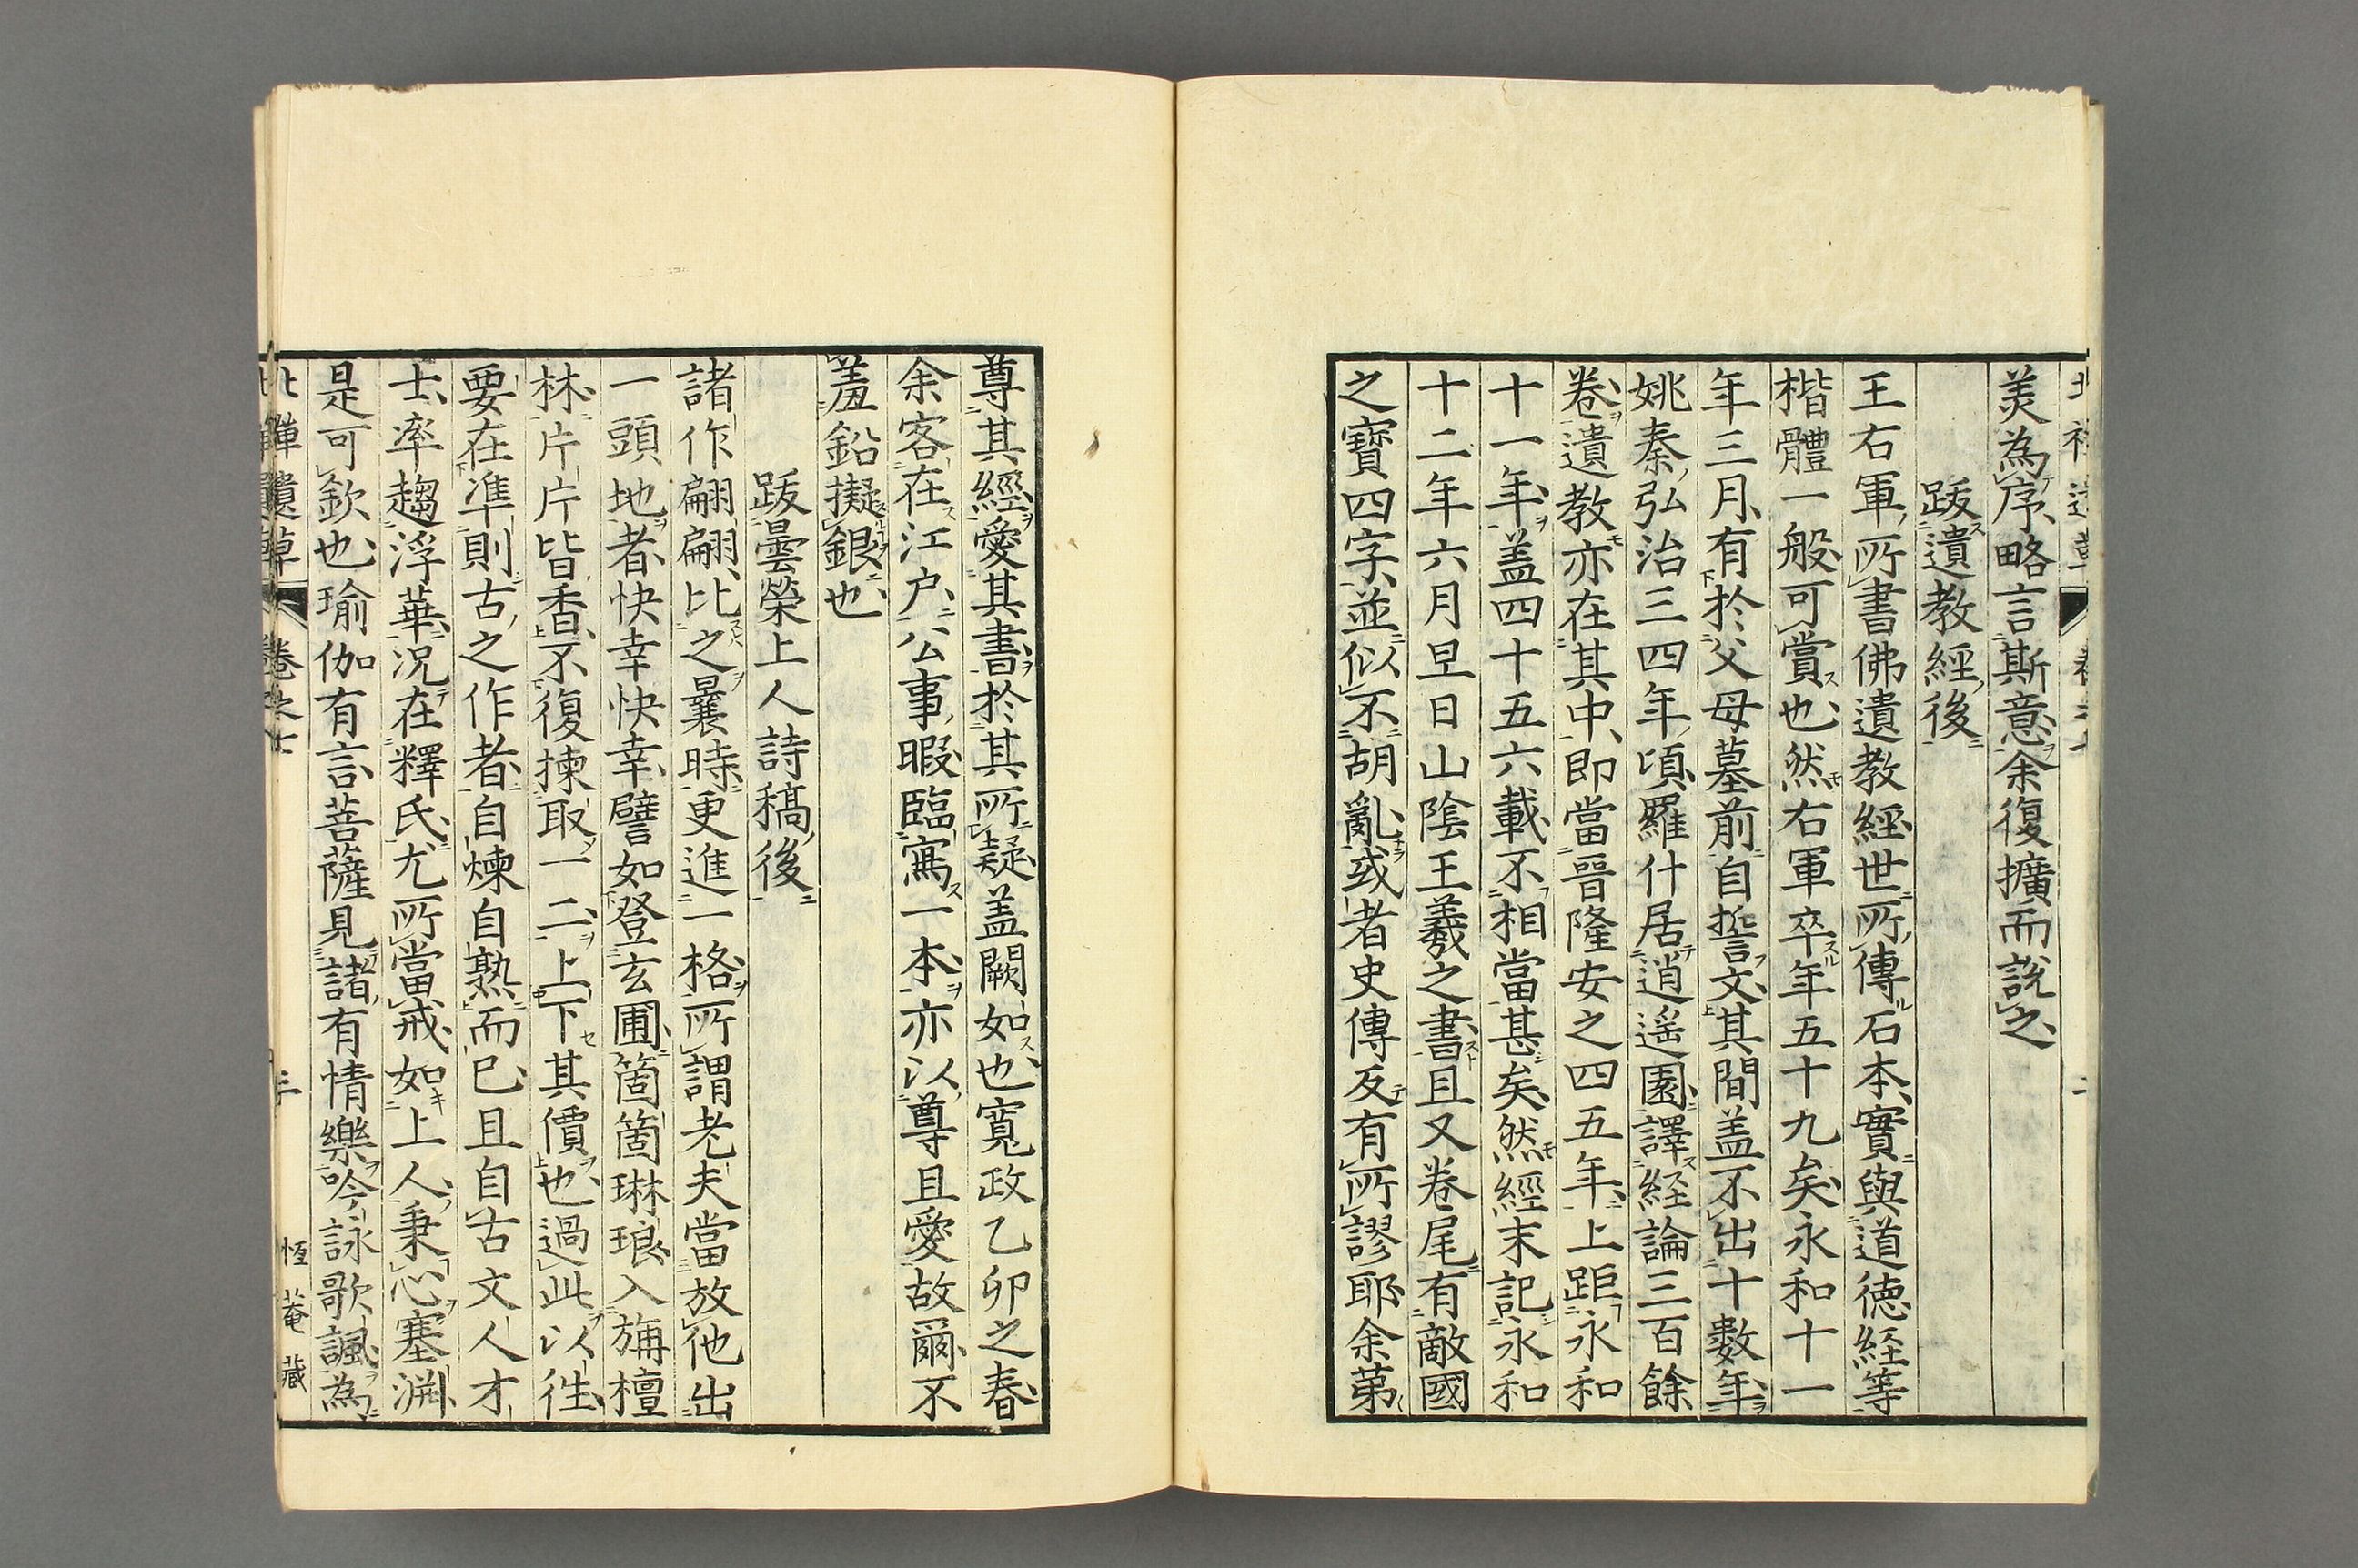 羙為序略言斯意余復擴而說之
跋遺教經後
王右軍所書佛遺教經世所傳石本實與道德経等
楷體一般可賞也然右軍卒年五十九矣永和十一
年三月有於父母墓前自誓文其間盖不出十數年
姚秦弘治三四年頃羅什居逍遥園譯経論三百餘
卷遺教亦在其中即當晉隆安之四五年上距永和
十一年盖四十五六載不相當甚矣然經末記永和
十二年六月旦日山陰王羲之書且又卷尾有敵國
之寶四字並似不胡亂或者史傳反有所謬耶余苐
尊其經愛其書於其所疑盖闕如也寬政乙卯之春
余客在江户公事暇臨寫一本亦以尊且愛故爾不
羞鉛擬銀也
跋曇榮上人詩稿後
諸作翩翩比之曩時更進一格所謂老夫當放他出
一頭地者快幸快幸譬如登玄圃箇箇琳琅入旃檀
林片片皆香不復揀取一二上下其價也過此以徃
要在凖則古之作者自煉自熟而已且自古文人才
士率趨浮華況在釋氏尤所當戒如上人秉心塞渊
是可欽也瑜伽有言菩薩見諸有情樂吟詠歌諷為
北禅遺草 卷之七 三 恆菴藏